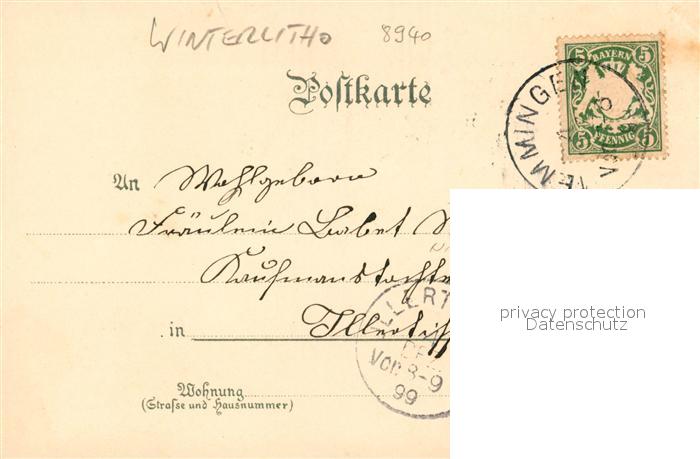 WINTERLITHO 8940
Postkarte
5 BAYERN 5
5 PFENNIG 5
MEMMINGEN
An Wohlgeboren
Fräulein Babet
Kaufmanstochte
in Illertiss
ILLERT
DEZ
VOR 8-9
99
Wohnung
(Strasse und Hausnummer)
privacy protection
Datenschutz